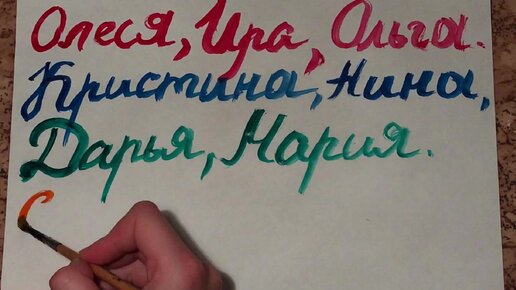 Олеся, Ира, Ольга.
Кристина, Нина,
Дарья, Мария.